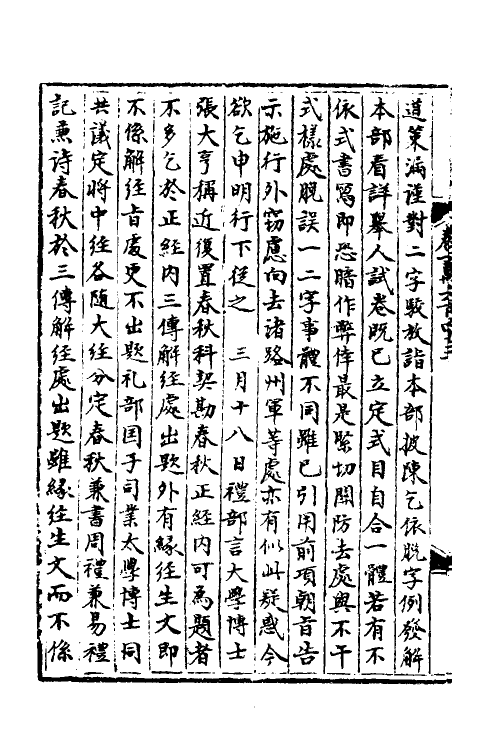 道策滿謹對二字駁放詣本部披陳乞依脫字例發解
本部看詳舉人試卷既已立定式目自合一體若有不
依式書寫即恐暗作弊倖最是緊切關防去處與不干
式樣處脫誤一二字事體不同雖已引用前項朝旨告
示施行外竊慮向去諸路州軍等處亦有似此疑惑今
欲乞申明行下從之 三月十八日禮部言大學博士
張大亨稱近復置春秋科契勘春秋正經內可爲題者
不多乞於正經內三傳解經處出題外有緣經生文即
不係解經旨處更不出題礼部国子司業太學博士同
共議定將中經各隨大經分定春秋兼書周禮兼易禮
記兼詩春秋於三傳解經處出題雖緣經生文而不係